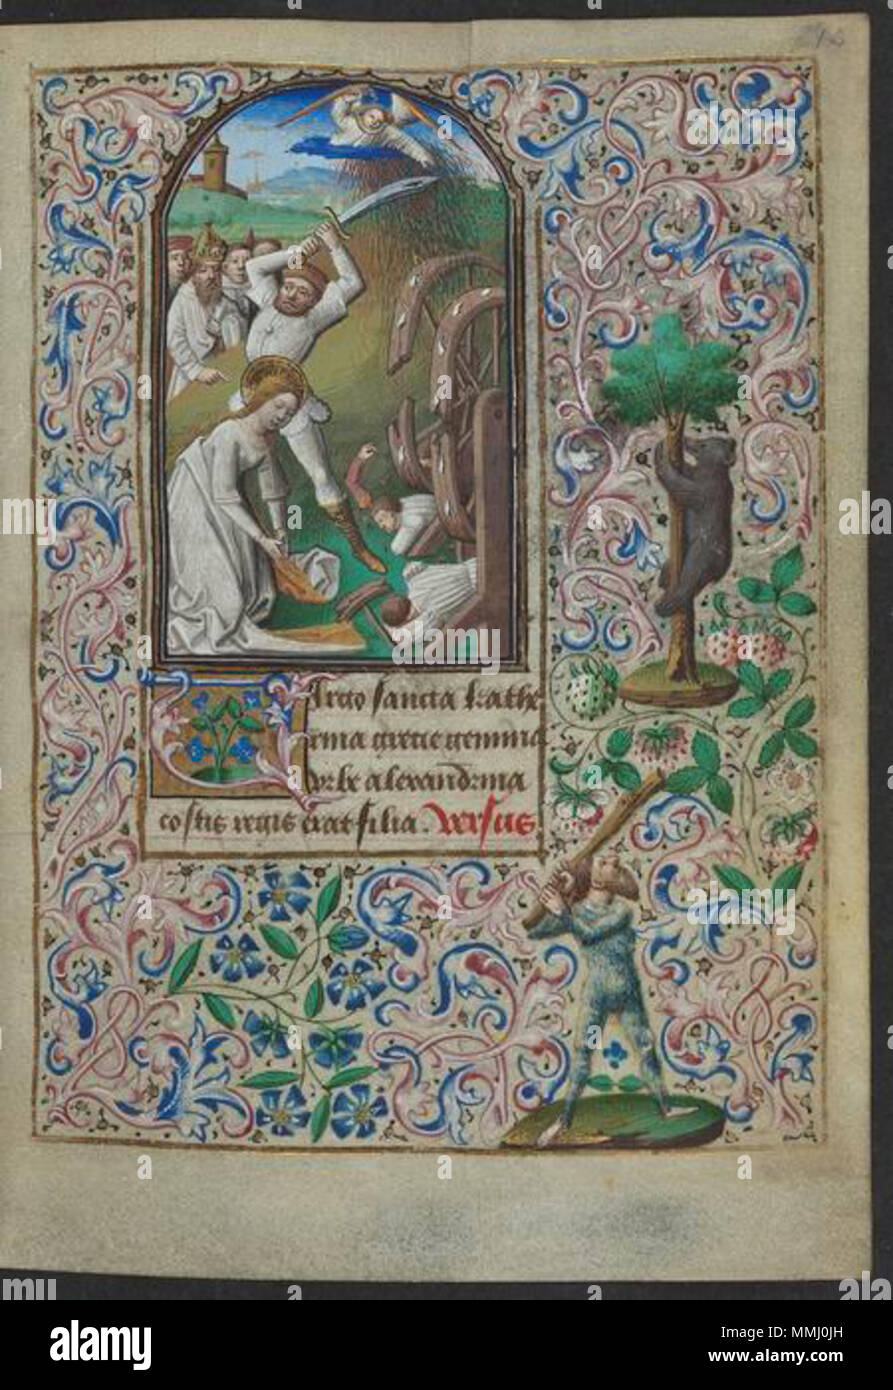 Virgo sancta kathe
rina grecie gemma
vrbe alexandrina
costis regis erat filia. Versus
alamy
Image ID: MMJ0JH
www.alamy.com